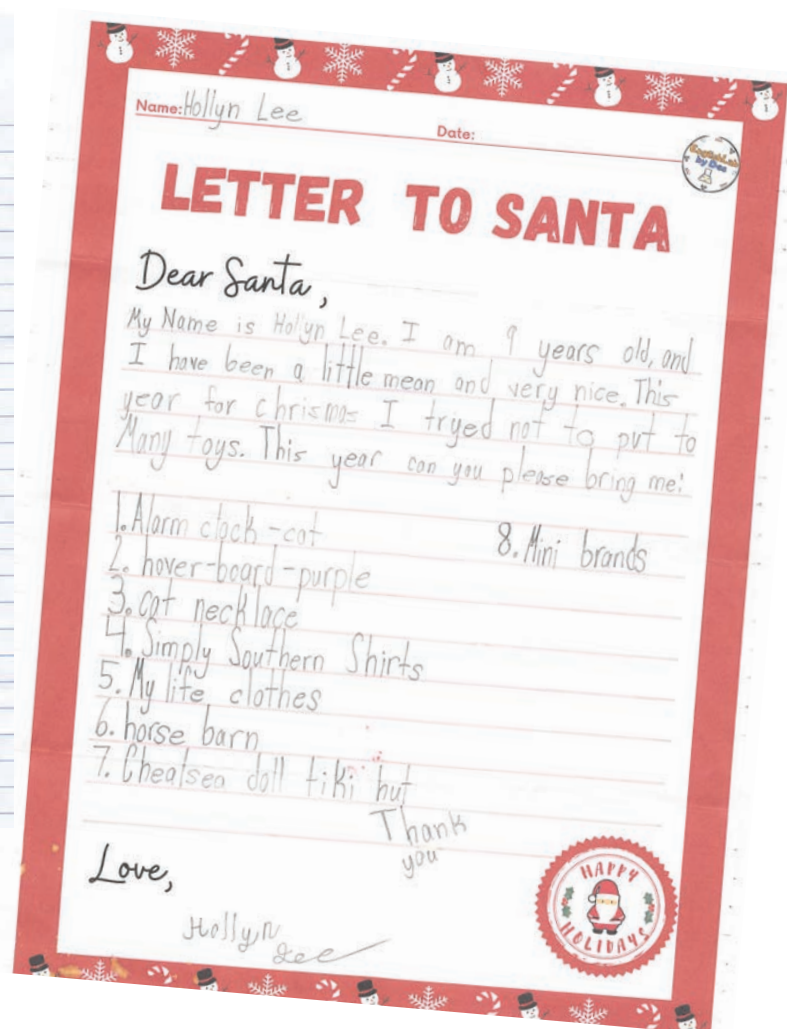 Name: Hollyn Lee
Date:
EnglishLab
by Dee
LETTER TO SANTA
Dear Santa,
My Name is Hollyn Lee. I am 9 years old, and
I have been a little mean and very nice. This
year for chrismas I tryed not to put to
Many toys. This year can you please bring me:
1. Alarm clock - cat
8. Mini brands
2. hover-board - purple
3. cat necklace
4. Simply Southern Shirts
5. My life clothes
6. horse barn
7. Chealsea doll tiki hut
Thank
you
Love,
Hollyn
Lee
HAPPY
HOLIDAYS